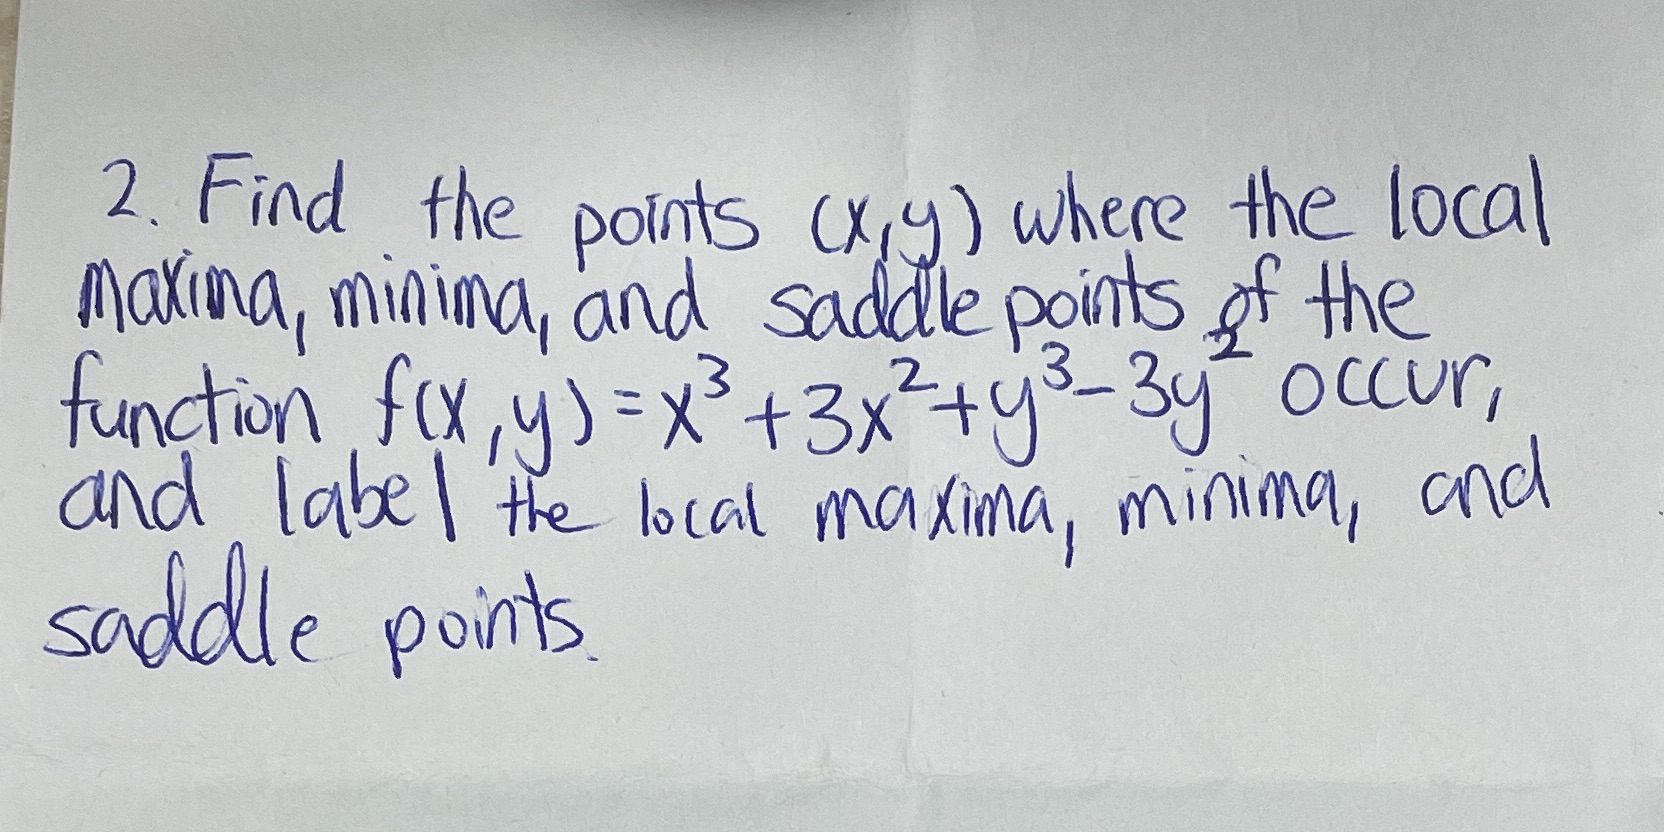 2. Find the points (x,y) where the local
maxima, minima, and saddle points of the
function f(x,y)=x³+3x²+y³-3y² occur,
and label the local maxima, minima, and
saddle points.